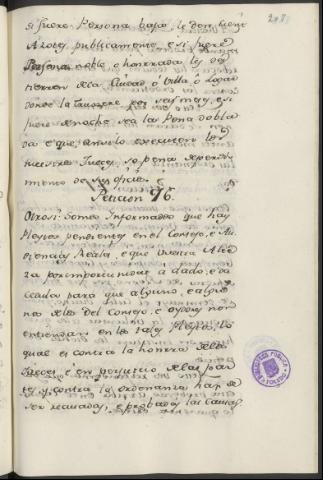 si fuere Persona baja, le den cient
Azotes publicamente, e si fuere
Persona noble o honrrada les des
tierren de la Ciudad o Villa, o Lugar
donde la
fuere de noche sea la Pena dobla
da e que ansi lo executen los
Jueces, so pena de perdi
miento de sus oficios. e
Peticion 76.
Otrosi: Somos Informados que hay
Pleytos pendientes en el Consejo, e Au
diencias Reales, e que Vuestra Alte
za por importunidad a dado, e da
Cedulas para que alguno, e algu
nos de los del Consejo, e oydores non
entiendan en los tales Pleytos, lo
qual es contra la honrra de los
Jueces, e en perjuicio de las par
tes, y contra la ordenanza han de
ser recusados, e probadas las Causas